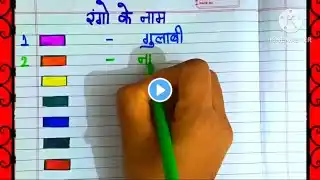 रंगो के नाम
1 - गुलाबी
2 - ना